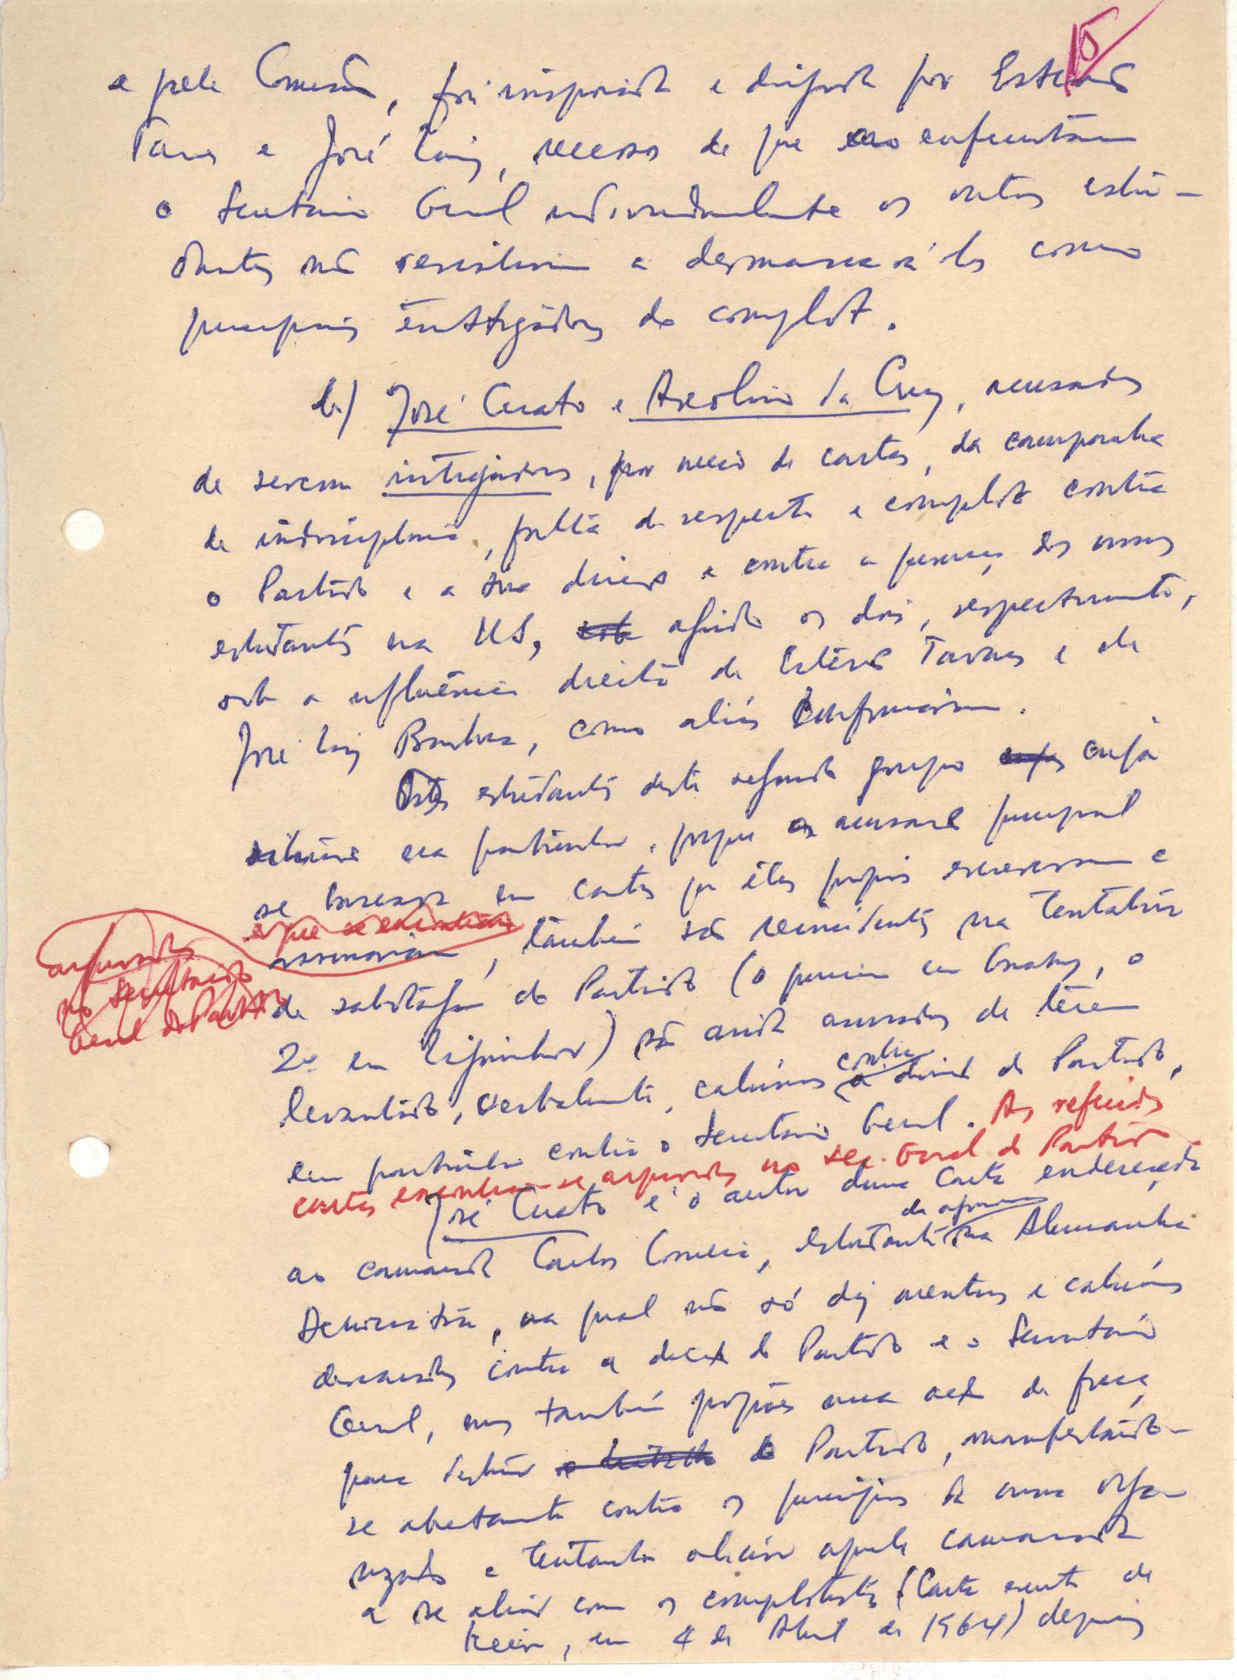 15
e pela Comissão, foi inspirada e dirigida por Estevão
Tavares e José Luiz, receosos de que ao enfrentarem
o Secretário Geral individualmente os outros estu-
dantes não resistiriam a desmascará-los como
principais instigadores do complot.
b) José Curato e Avelino da Cruz, acusados
de serem instigadores, por meio de cartas, da campanha
de indisciplina, falta de respeito e complot contra
o Partido e a sua direcção e contra a presença dos nossos
estudantes na US, agindo os dois, respectivamente,
sob a influência directa de Estêvão Tavares e de
José Luiz Barbosa, como aliás confirmaram.
Os estudantes deste segundo grupo cuja
situação é particular, porque a acusação principal
se baseia em cartas que êles próprios escreveram e
assinaram, também são reincidentes na tentativa
arquivadas
no Secretariado
Geral do Partido
de sabotagem do Partido (o primeiro em Conakry, o
2º em Ziguinchor) são ainda acusados de terem
levantado, verbalmente, calúnias contra a direcção do Partido,
em particular contra o Secretário Geral. As referidas
cartas encontram-se arquivadas no Sec. Geral do Partido
José Curato é o autor duma Carta endereçada
ao camarada Carlos Correia, estudante na Alemanha
Democrática, na qual não só diz mentiras e calúnias
contra a direcção do Partido e o Secretário
Geral, mas também propõe uma acção de força
para destruir o Partido, manifestando-
se abertamente contra os princípios da nossa orga
nização e tentando aliciar aquele camarada
a se aliar com os complotistas (Carta escrita de
Kiev, em 4 de Abril de 1964) depois